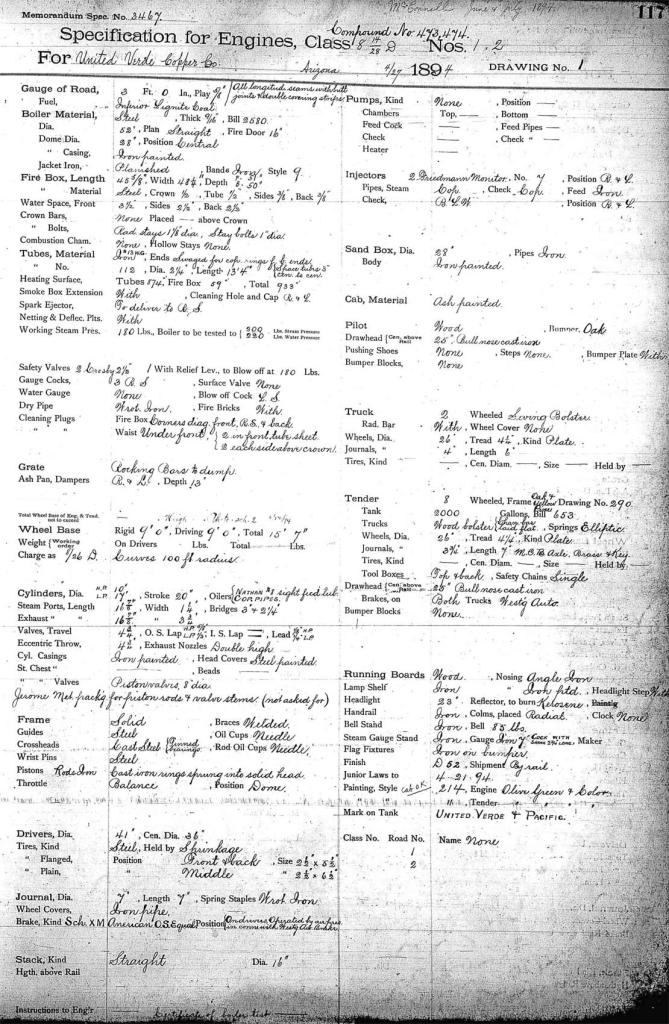 117
Memorandum Spec. No. 3467.
McConnell June & July 1894.
Compound No. 473, 474.
Specification for Engines, Class 8 14/28 D Nos. 1, 2
For United Verde Copper Co.
Arizona 4/27 1894 DRAWING No. 1
Gauge of Road, 3 Ft. 0 In., Play 5/8" { All longitud. seams with butt
joints & double covering strips
Fuel, Inferior Lignite Coal.
Boiler Material, Steel, Thick 9/16, Bill 2580.
Dia. 52", Plan Straight, Fire Door 16"
Dome Dia. 28", Position Central
" Casing, Iron painted.
Jacket Iron, Planished, Bands Iron, Style 9.
Fire Box, Length 45 5/8", Width 48 1/4", Depth 50"
" Material Steel, Crown, Tube 1/2, Sides 5/16, Back 5/16
Water Space, Front 3 1/2, Sides 2 1/2, Back 2 1/2
Crown Bars, None Placed — above Crown
" Bolts, Rad stays 1 1/8 dia, Stay bolts 1" dia.
Combustion Cham. None, Hollow Stays None.
Tubes, Material Iron, Ends Swaged for cop. rings f. & b. ends
" No. 112, Dia. 2 1/4", Length 13' 4" { Space tubes 3"
cen. to cen.
Heating Surface, Tubes 874, Fire Box 59", Total 933"
Smoke Box Extension With, Cleaning Hole and Cap R. & L.
Spark Ejector, To deliver to R. S.
Netting & Deflec. Plts. With
Working Steam Pres. 180 Lbs., Boiler to be tested to { 200 Lbs. Steam Pressure
220 Lbs. Water Pressure
Safety Valves 2 Crosby 2 1/2, 1 With Relief Lev., to Blow off at 180 Lbs.
Gauge Cocks, 3 R. S, Surface Valve None
Water Gauge None, Blow off Cock L. S
Dry Pipe Wrot. Iron, Fire Bricks With.
Cleaning Plugs Fire Box Corners diag. front, R.S. & back
" " Waist Under front, { 2 in front tube sheet.
2 each side above crown.
Grate Rocking Bars to dump.
Ash Pan, Dampers R. & L., Depth 13"
Total Wheel Base of Eng. & Tend.
not to exceed
Wheel Base Rigid 9' 0", Driving 9' 0", Total 15' 7"
Weight { Working order On Drivers Lbs. Total Lbs.
Charge as 8/26 D. Curves 100 ft radius.
Cylinders, Dia. H.P. 10"
L.P. 17", Stroke 20", Oilers { NATHAN #8 sight feed lub.
COP. PIPES.
Steam Ports, Length 16, Width 1 1/4, Bridges 3" & 2 1/4"
Exhaust " 16 " 3
Valves, Travel 4 3/4, O. S. Lap, I. S. Lap —, Lead
Eccentric Throw, 4 3/4, Exhaust Nozzles Double high
Cyl. Casings Iron painted, Head Covers Steel painted
St. Chest " —, Beads —
" " Valves Piston valves, 8" dia
Jerome Met. packg. for piston rods & valve stems. (not asked for)
Frame Solid, Braces Welded.
Guides Steel, Oil Cups Needle
Crossheads Cast Steel { Tinned bearings Rod Oil Cups Needle,
Wrist Pins Steel
Pistons Rods Iron Cast iron rings sprung into solid head.
Throttle Balance, Position Dome.
Drivers, Dia. 41", Cen. Dia. 36"
Tires, Kind Steel, Held by Shrinkage
" Flanged, Position Front & back, Size 2 1/2" x 5 1/2"
" Plain, " Middle " 2 1/2" x 6 1/2"
Journal, Dia. 7", Length 7", Spring Staples Wrot Iron.
Wheel Covers, Iron pipe
Brake, Kind Sch. XM American O.S. Equal Position { On drivers. Operated by air pres.
in conn. with Westg. Aut. Brake
Stack, Kind Straight Dia. 16"
Hgth. above Rail
Instructions to Eng'r Certificate of boiler test
Pumps, Kind None, Position —
Chambers Top, — Bottom —
Feed Cock —, Feed Pipes —
Check —, Check " —
Heater —
Injectors 2 Friedmann Monitor. No. 7, Position R. & L.
Pipes, Steam Cop., Check Cop., Feed Iron.
Check, B L W, Position R. & L.
Sand Box, Dia. 28", Pipes Iron
Body Iron painted.
Cab, Material Ash painted.
Pilot Wood, Bumper, Oak
Drawhead { Cen. above Rail 25" Bull nose cast iron
Pushing Shoes None, Steps None, Bumper Plate With
Bumper Blocks, None
Truck 2 Wheeled Swing Bolster
Rad. Bar With, Wheel Cover None
Wheels, Dia. 26", Tread 4 1/2, Kind Plate.
Journals, " 4", Length 6"
Tires, Kind —, Cen. Diam. —, Size — Held by —
Tender 8 Wheeled, Frame Oak & yellow Pine Drawing No. 290
Tank 2000 Gallons, Bill 653.
Trucks Wood bolster, laid flat, Springs Elliptic
Wheels, Dia. 26", Tread 4 1/4, Kind Plate
Journals, " 3 3/4", Length 7" M.C.B. Axle, Brass & Key.
Tires, Kind —, Cen. Diam. —, Size — Held by —
Tool Boxes Top & back, Safety Chains Single
Drawhead { Cen. above Rail 25" Bull nose cast iron
Brakes, on Both Trucks Westg Auto.
Bumper Blocks None.
Running Boards Wood, Nosing Angle Iron
Lamp Shelf Iron " Iron ptd., Headlight Step With
Headlight 23", Reflector, to burn Kerosene, Painting
Handrail Iron, Colms, placed Radial, Clock None
Bell Stand Iron, Bell 85 lbs.
Steam Gauge Stand Iron, Gauge Iron 7" { COCK WITH Maker
Flag Fixtures Iron on bumper.
Finish D 52, Shipment By rail.
Junior Laws to 4-21-94.
Painting, Style cab OK. 214, Engine Olive Green & Color.
" " ", Tender "
Mark on Tank UNITED VERDE & PACIFIC.
Class No. Road No. Name None
1
2